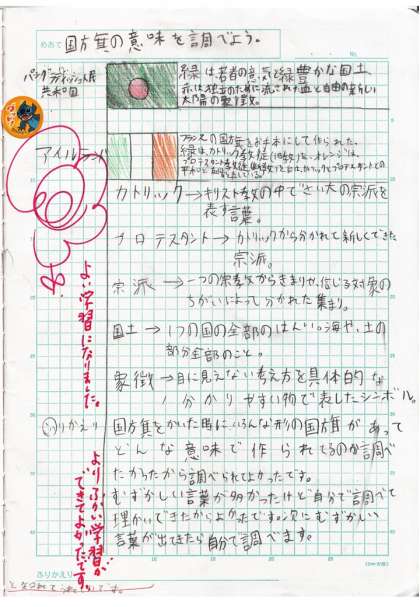 めあて 国旗の意味を調べよう。
No.
バングラディッシュ人民
共和国
緑は、若者の意気と緑豊かな国土、
赤は独立のために流された血と自由の新しい
太陽の象徴。
アイルランド
フランスの国旗をお手本にして作られた。
緑はカトリック教徒(旧教)を、オレンジは、
プロテスタント教徒
カトリック→キリスト教の中でさい大の宗派を
表す言葉。
プロテスタント→カトリックから分かれて新しくできた
宗派。
宗派→一つの宗教からきまりや、信じる対象の
ちがいによって分かれた集まり。
国土→1つの国の全部のはんい。海や、土の
部分全部のこと。
象徴→目に見えない考え方を具体的な
分かりやすい物で表したシンボル。
ふりかえり 国旗をかいた時にいろんな形の国旗があって
どんな意味で作られてるのか調べ
たかったから調べられてよかったです。
むずかしい言葉が多かったけど自分で調べて
理かいできたからよかったです。次にむずかしい
言葉が出てきたら自分で調べます。
よい学習になりました。
よりふかい学習が
できてよかったです。
ふりかえり